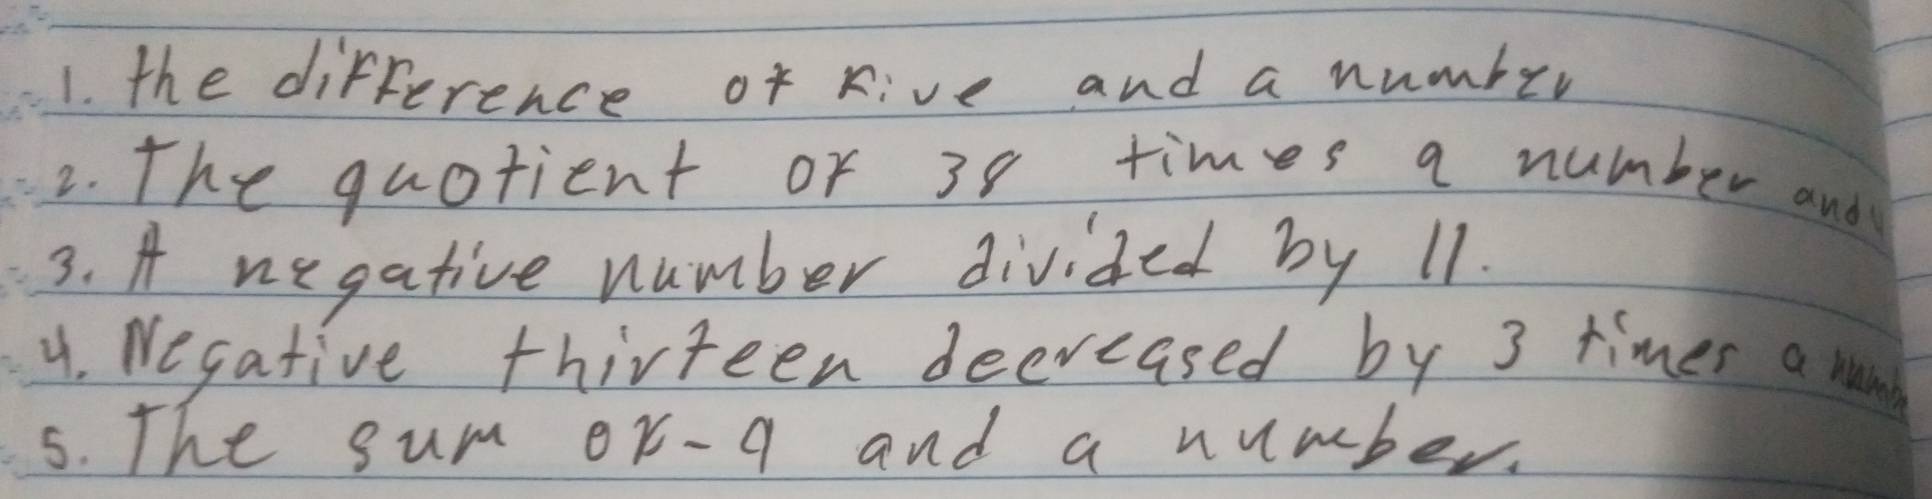 1. the difference of five and a number
2. The quotient of 38 times a number and
3. A negative number divided by 11.
4. Negative thirteen decreased by 3 times a number
5. The sum of -9 and a number.